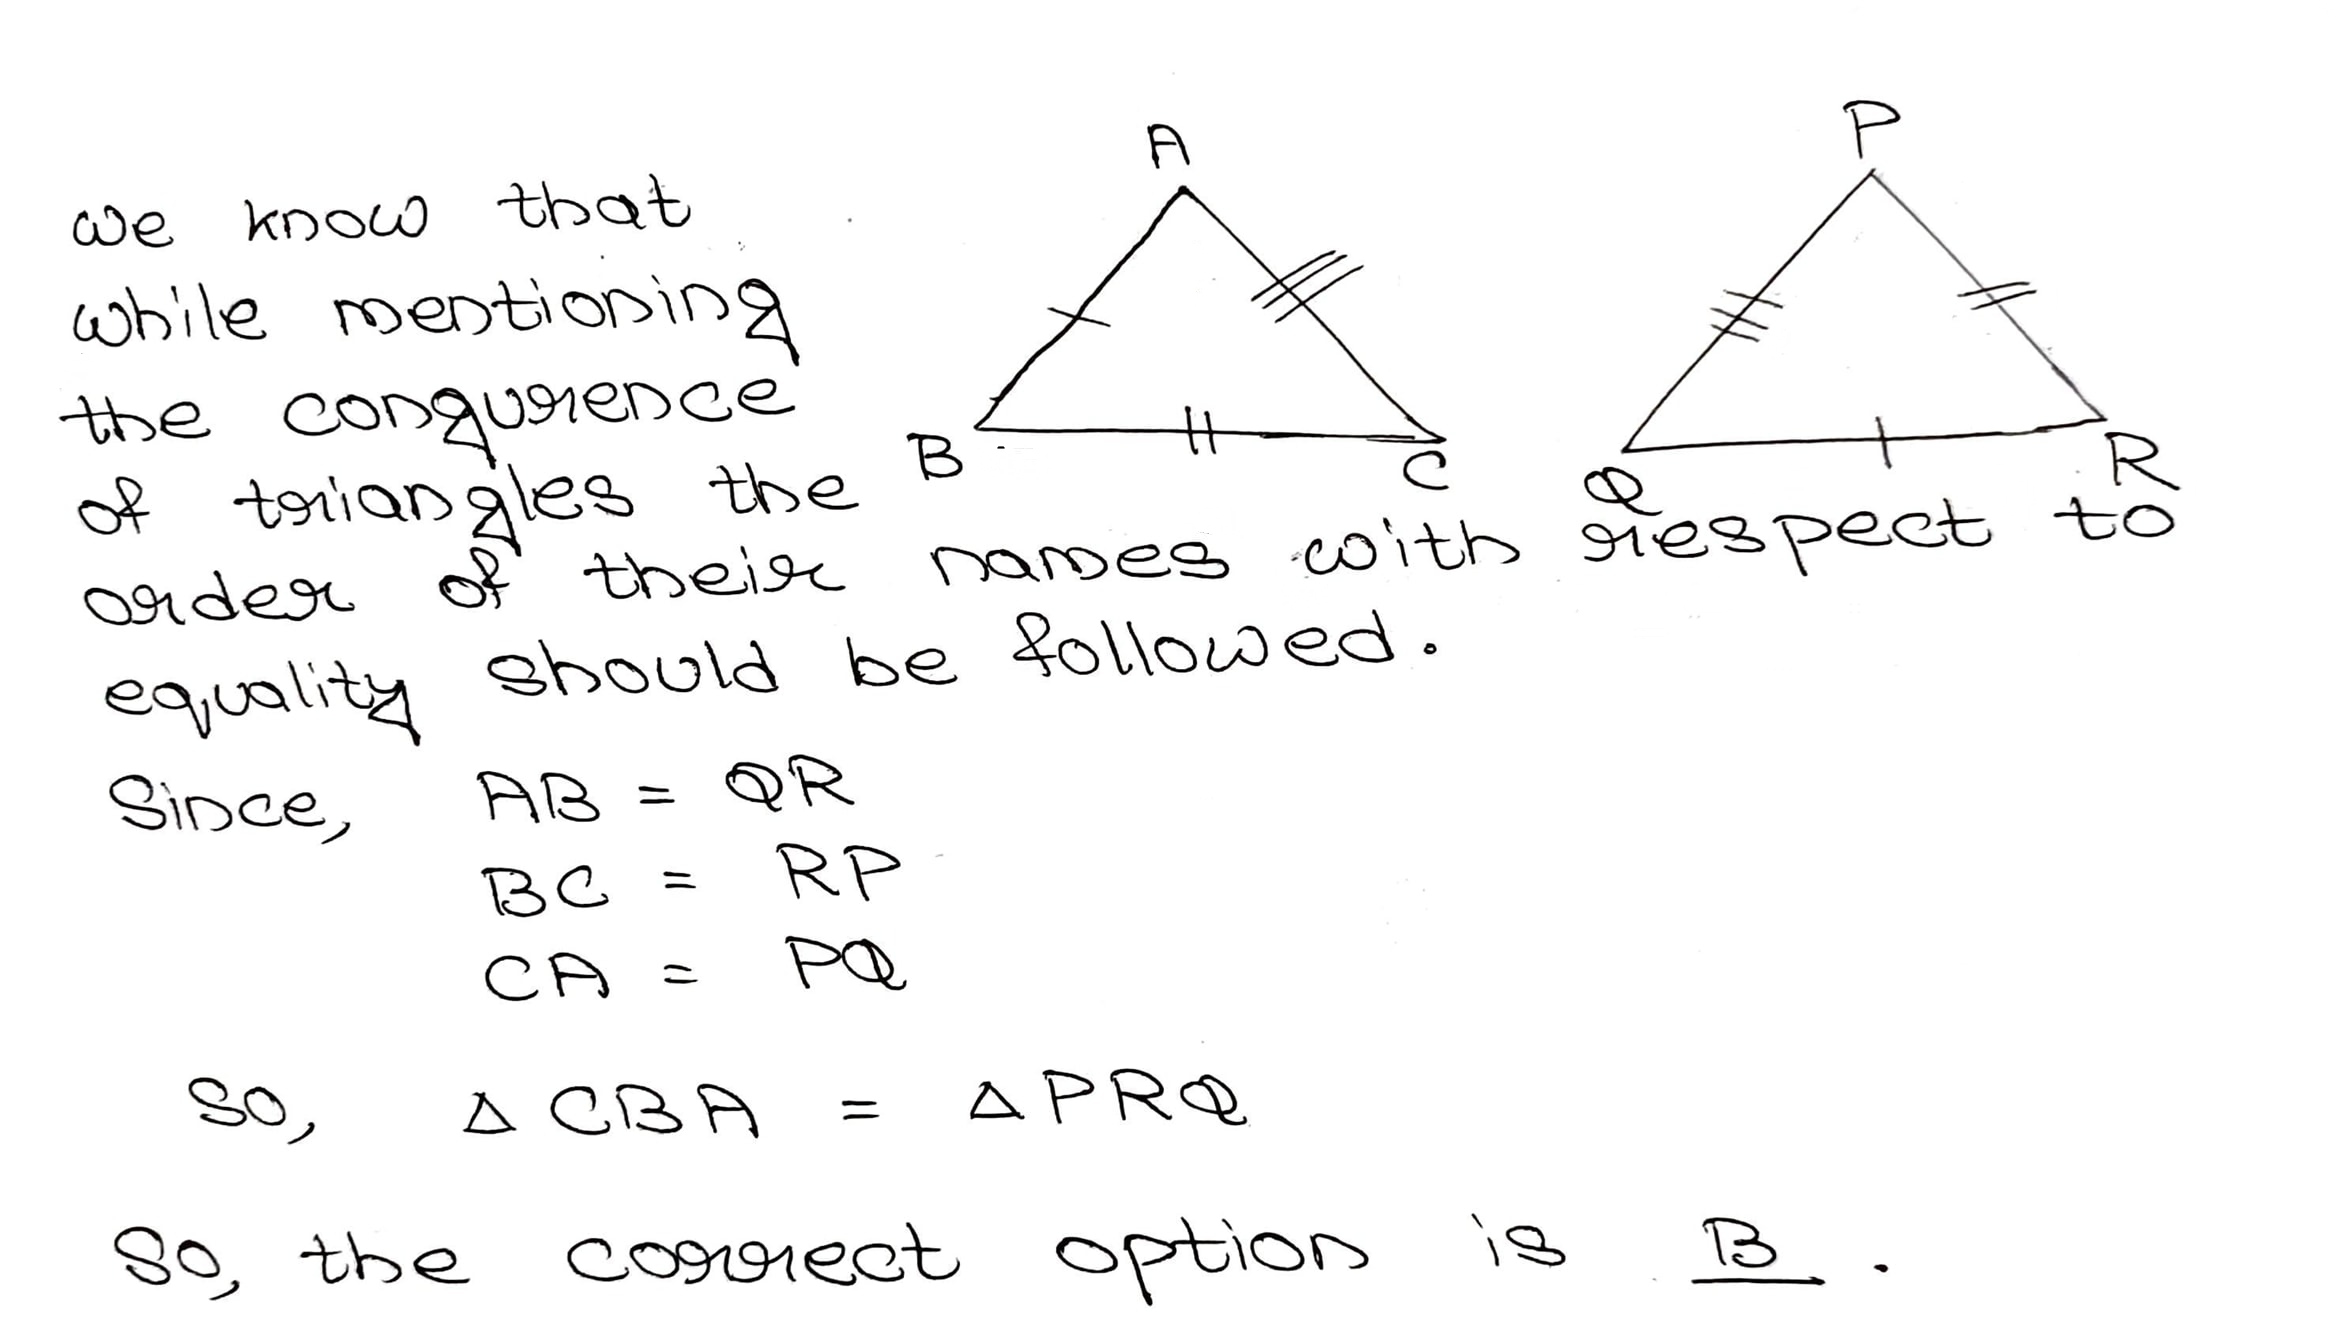 A
P
we know that
while mentioning
the conqurence
of triangles the
B
C
Q
R
order of their names with respect to
equality should be followed.
Since, AB = QR
BC = RP
CA = PQ
So, △ CBA = △ PRQ
So, the correct option is B.